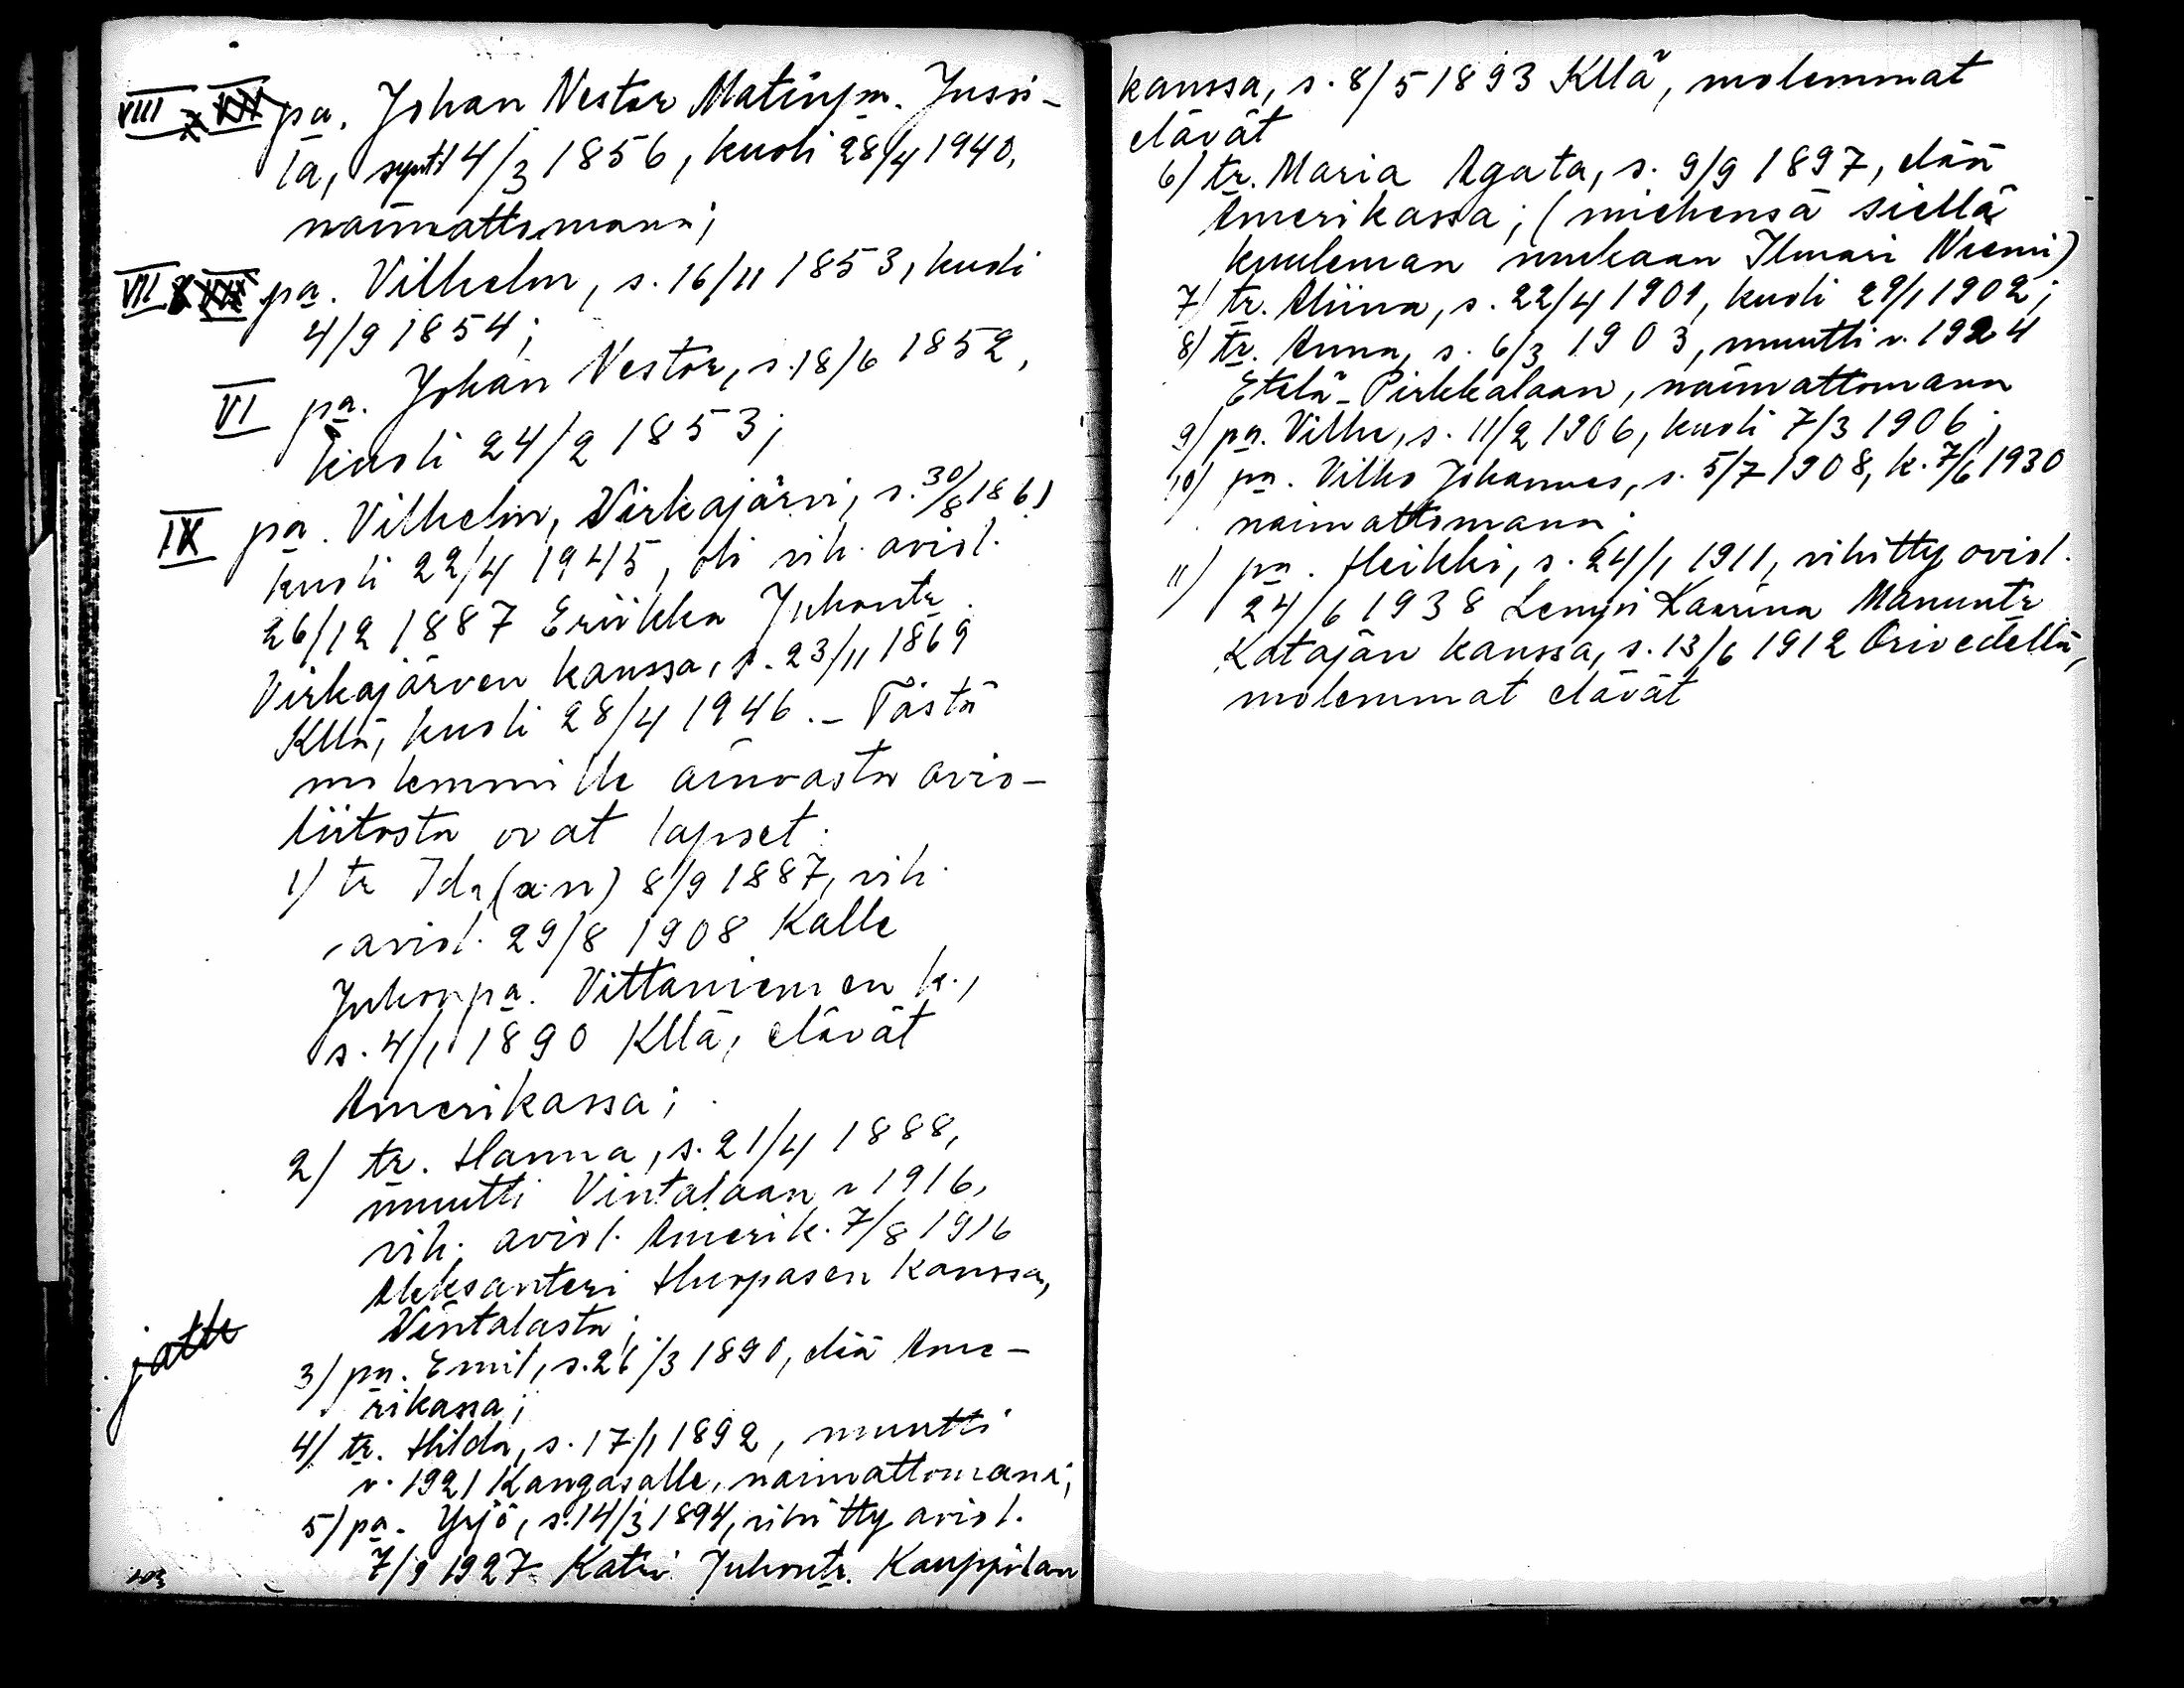 VIII pa. Johan Nestor Matinpa. Jussi-
la, synt 4/3 1856, kuoli 28/4 1940,
naimattomana;
VII pa. Vilhelm, s. 16/11 1853, kuoli
4/9 1854;
VI pa. Johan Nestor, s. 18/6 1852,
kuoli 24/2 1853;
IX pa. Vilhelm, Virkajärvi, s. 30/8 1861
kuoli 22/4 1945, oli vih. aviol.
26/12 1887 Eriikka Juhontr.
Virkajärven kanssa, s. 23/11 1869
Kllä, kuoli 28/4 1946. - Tästä
molemmille ainoasta avio-
liitosta ovat lapset:
1) tr Ida (a:n) 8/9 1887, vih.
aviol. 29/8 1908 Kalle
Juhonpa. Vittaniemen k.,
s. 4/1 1890 Kllä, elävät
Amerikassa;
2) tr. Hanna, s. 21/4 1888,
muutti Vintalaan v 1916,
vih. aviol. Amerik. 7/8 1916
Aleksanteri Huopasen kanssa,
Vintalasta;
3) pa. Emil, s. 26/3 1890, elää Ame-
rikassa;
jatk
4) tr. Hilda, s. 17/1 1892, muutti
v. 1921 Kangasalle, naimattomana;
5) pa. Yrjö, s. 14/3 1894, vihitty aviol.
7/9 1927 Katri Juhontr. Kauppilan
kanssa, s. 8/5 1893 Kllä, molemmat
elävät
6) tr. Maria Agata, s. 9/9 1897, elää
Amerikassa; (miehensä siellä
kuuleman mukaan Ilmari Niemi)
7) tr. Aliina, s. 22/4 1901, kuoli 29/1 1902;
8) tr. Anna, s. 6/3 1903, muutti v. 1924
Etelä-Pirkkalaan, naimattomana
9) pa. Ville, s. 11/2 1906, kuoli 7/3 1906;
10) pa. Vilho Johannes, s. 5/7 1908, k. 7/6 1930
naimattomana;
11) pa. Heikki, s. 24/1 1911, vihitty aviol.
24/6 1938 Lempi Kaarina Manuntr
Katajan kanssa, s. 13/6 1912 Orivedellä,
molemmat elävät